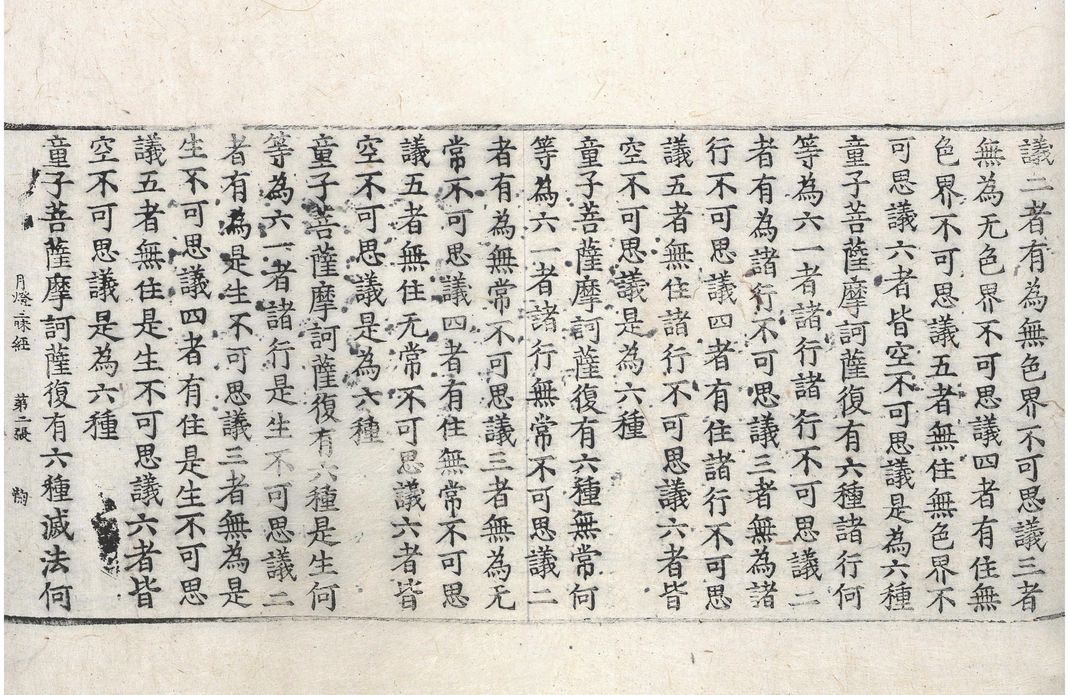 議二者有為無色界不可思議三者
無為无色界不可思議四者有住無
色界不可思議五者無住無色界不
可思議六者皆空不可思議是為六種
童子菩薩摩訶薩復有六種諸行何
等為六一者諸行諸行不可思議二
者有為諸行不可思議三者無為諸
行不可思議四者有住諸行不可思
議五者無住諸行不可思議六者皆
空不可思議是為六種
童子菩薩摩訶薩復有六種無常何
等為六一者諸行無常不可思議二
者有為無常不可思議三者無為无
常不可思議四者有住無常不可思
議五者無住无常不可思議六者皆
空不可思議是為六種
童子菩薩摩訶薩復有六種是生何
等為六一者諸行是生不可思議二
者有為是生不可思議三者無為是
生不可思議四者有住是生不可思
議五者無住是生不可思議六者皆
空不可思議是為六種
童子菩薩摩訶薩復有六種滅法何
月燈三昧經 第二張 鞠